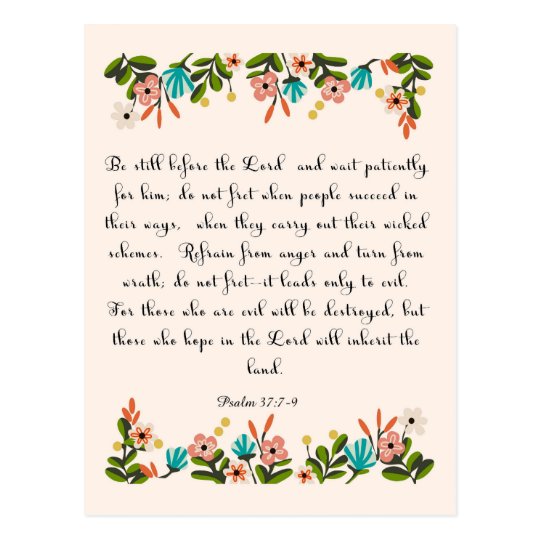 Be still before the Lord and wait patiently
for him; do not fret when people succeed in
their ways, when they carry out their wicked
schemes. Refrain from anger and turn from
wrath; do not fret--it leads only to evil.
For those who are evil will be destroyed, but
those who hope in the Lord will inherit the
land.
Psalm 37:7-9